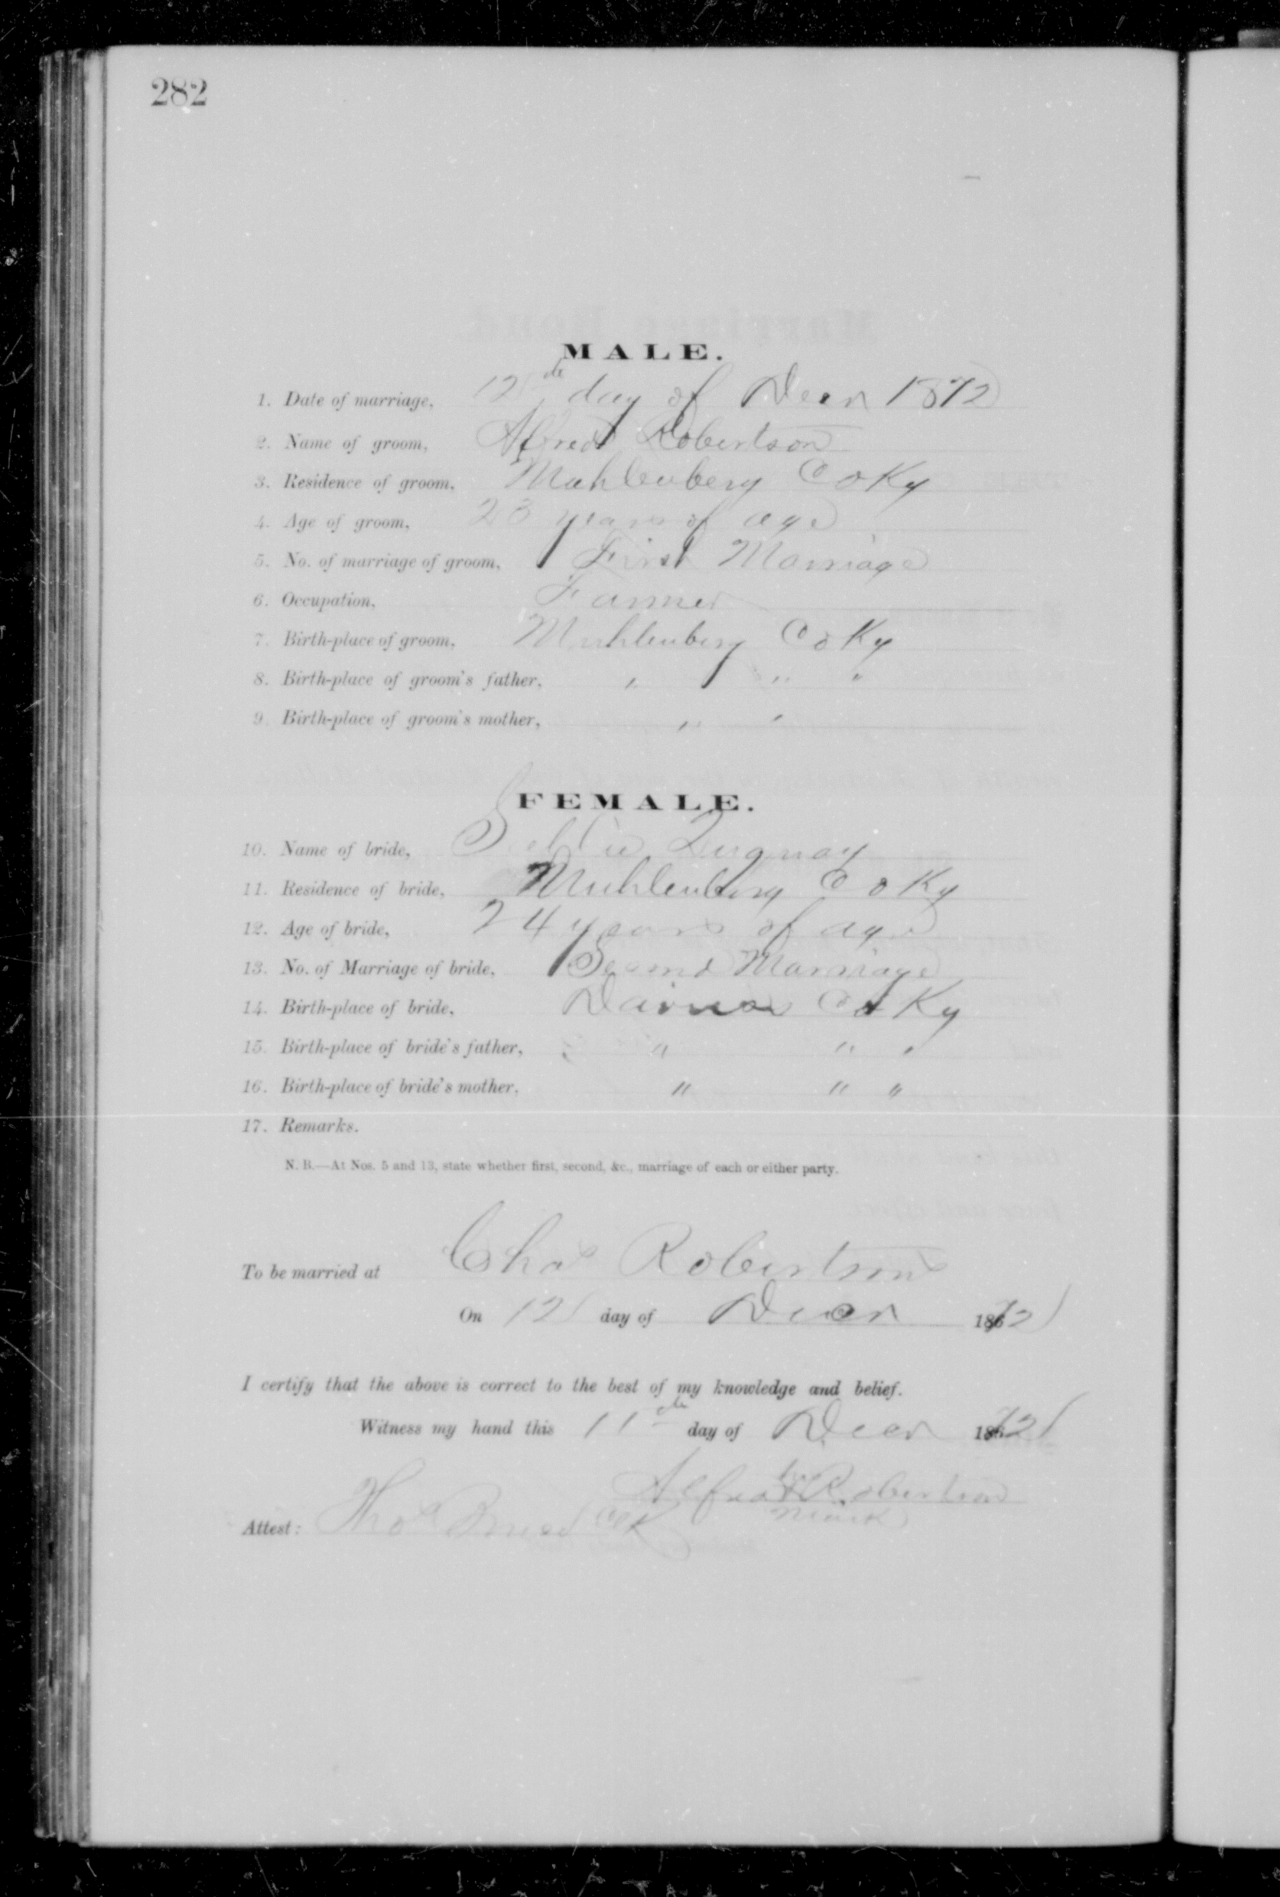 282
MALE.
1. Date of marriage, 12th day of Decr 1872
2. Name of groom, Alfred Robertson
3. Residence of groom, Muhlenberg Co Ky
4. Age of groom, 23 years of age
5. No. of marriage of groom, First Marriage
6. Occupation, Farmer
7. Birth-place of groom, Muhlenberg Co Ky
8. Birth-place of groom's father, " " "
9. Birth-place of groom's mother, " "
FEMALE.
10. Name of bride,
11. Residence of bride, Muhlenberg Co Ky
12. Age of bride, 24 years of age
13. No. of Marriage of bride, Second Marriage
14. Birth-place of bride, Co Ky
15. Birth-place of bride's father, " " "
16. Birth-place of bride's mother, " " "
17. Remarks.
N. B.—At Nos. 5 and 13, state whether first, second, &c., marriage of each or either party.
To be married at Chas Robertsons
On 12 day of Decr 1872
I certify that the above is correct to the best of my knowledge and belief.
Witness my hand this 11th day of Decr 1872
Alfred his X Robertson
mark
Attest: Thos Clk